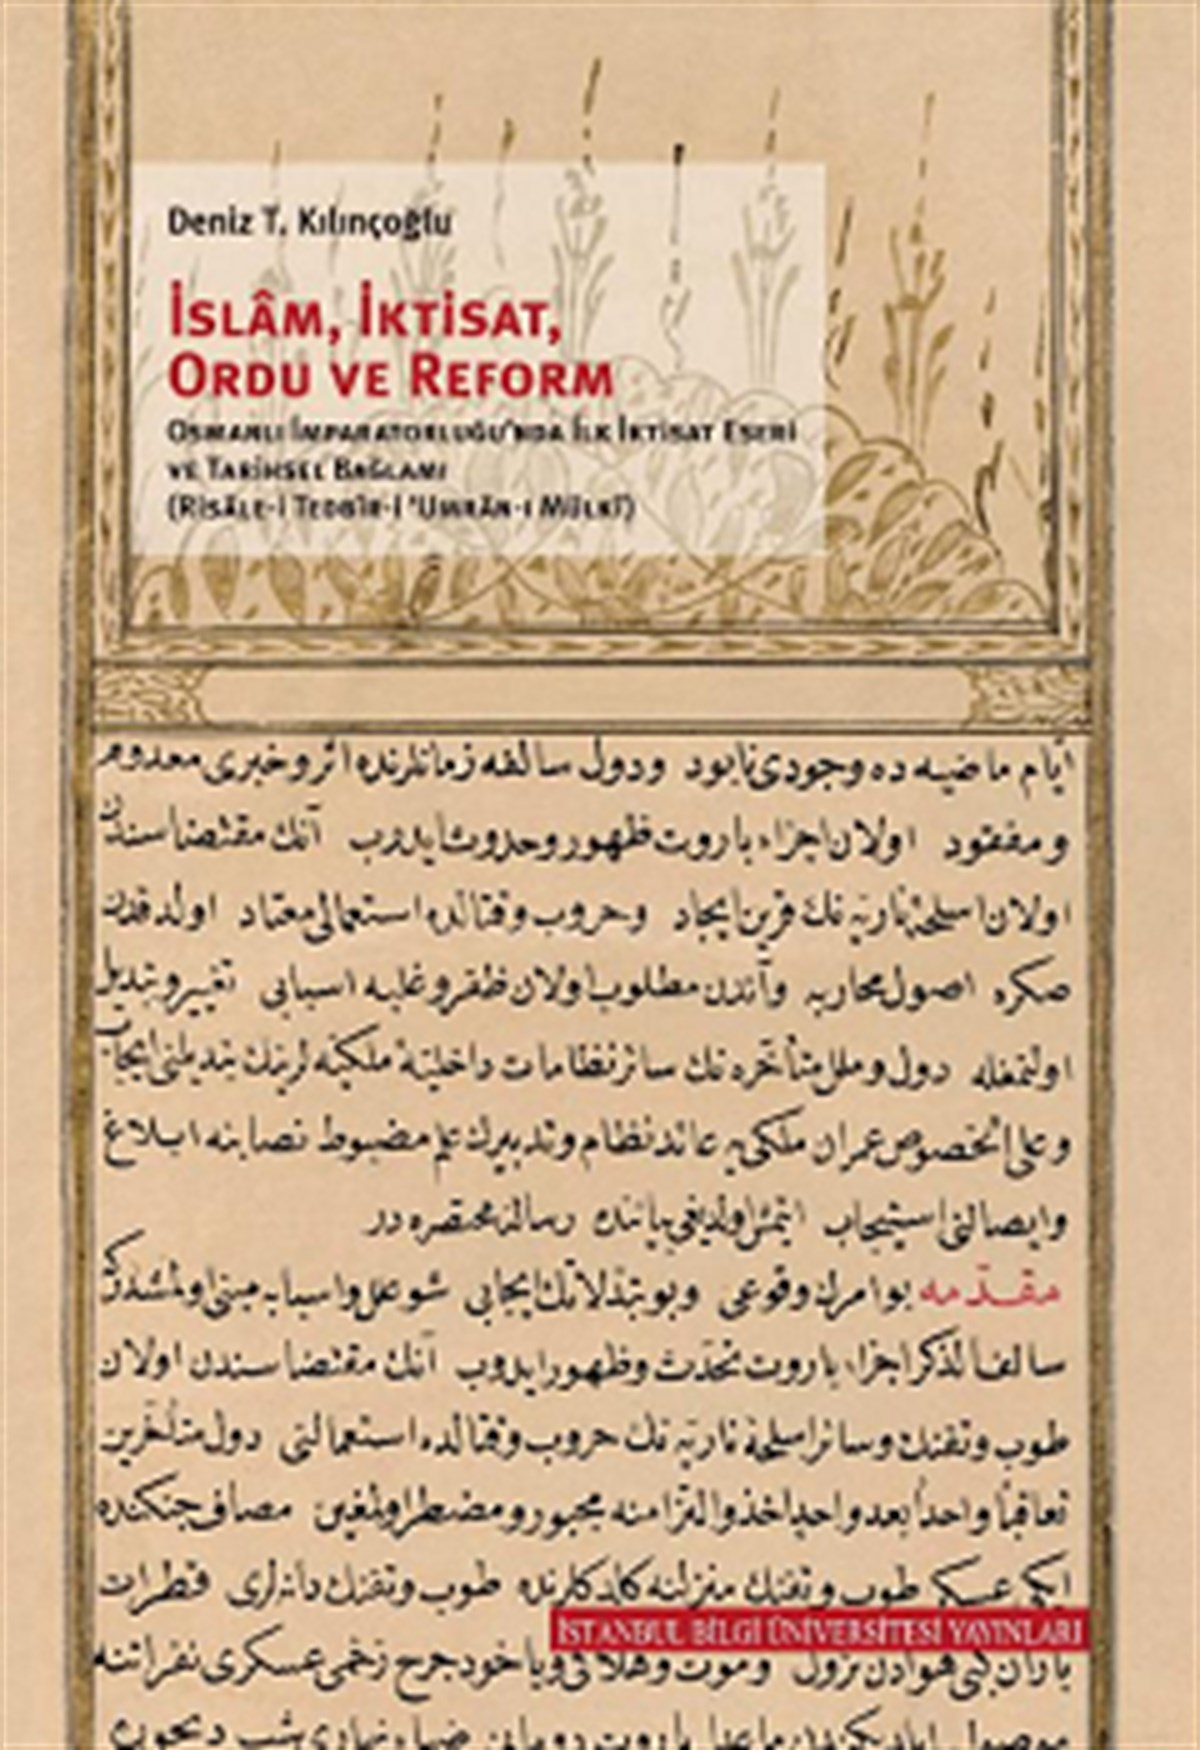 Deniz T. Kılınçoğlu
İSLÂM, İKTİSAT,
ORDU VE REFORM
OSMANLI İMPARATORLUĞU'NDA İLK İKTİSAT ESERİ
VE TARİHSEL BAĞLAMI
(RİSÂLE-İ TEDBÎR-İ 'UMRÂN-I MÜLKÎ)
ایام ماضیه ده وجودی نابود ودول سالفه زمانلرنده اثر وخبری معدوم
ومفقود اولان اجزاء باروت ظهور وحدوث ایدوب آنك مقتضاسندن
اولان اسلحهٔ ناریه نك قرین ایجاد وحروب وقتالده استعمالی معتاد اولدقدن
صکره اصول محاربه وآندن مطلوب اولان ظفر وغلبه اسبابی تغییر وتبدیل
اولنمغله دول وملل متأخره نك سائر نظامات داخلیهٔ ملکیه لرینك تبدیلنی ایجاب
وعلی الخصوص عمران ملکی یه عائد نظام وتدبیرك علم مضبوط نصابنه ابلاغ
وایصالنی استیجاب ایتمش اولدیغی بیاننده رساله مختصره در
مقدمه بو امرك وقوعی وبو تبدلاتك ایجابی شو علل واسبابه مبنی اولمشدركه
سالف الذكر اجزاء باروت تحدث وظهور ایدوب آنك مقتضاسندن اولان
طوب وتفنك وسائر اسلحهٔ ناریه نك حروب وقتالده استعمالنی دول متأخرین
تعاقبا واحدا بعد واحد اخذ والتزامنه مجبور ومضطر اولمغین مصاف جنكده
ایکی عسکر طوب وتفنك منزلنه كلدكلرنده طوب وتفنك دانه لری قطرات
باران كبی هوادن نزول وموت وهلاكی ویاخود جرح زخمی عسکری نفراتنه
İSTANBUL BİLGİ ÜNİVERSİTESİ YAYINLARI